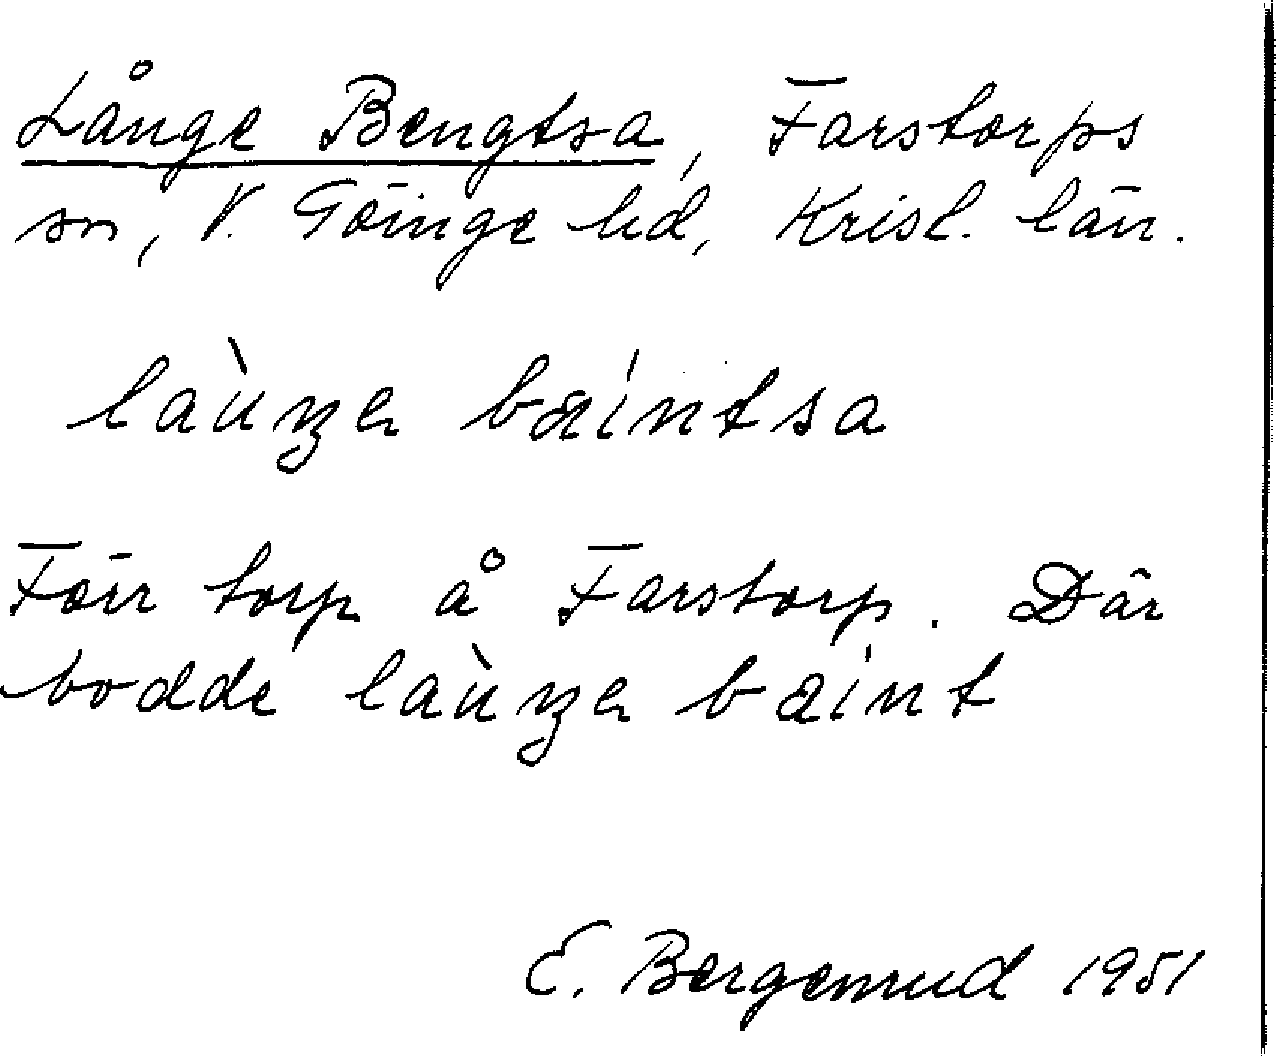 Långe Bengtsa, Farstorps
sn, V. Göinge hd, Krist. län.
laùŋən bäíntsa
Förr torp å Farstorp. Där
bodde laùŋən bäínt
E. Bergemrud 1951